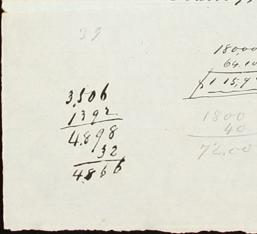 39
3,506
1392
4.898
32
4.866
180,00
64.10
1800
40
72.00